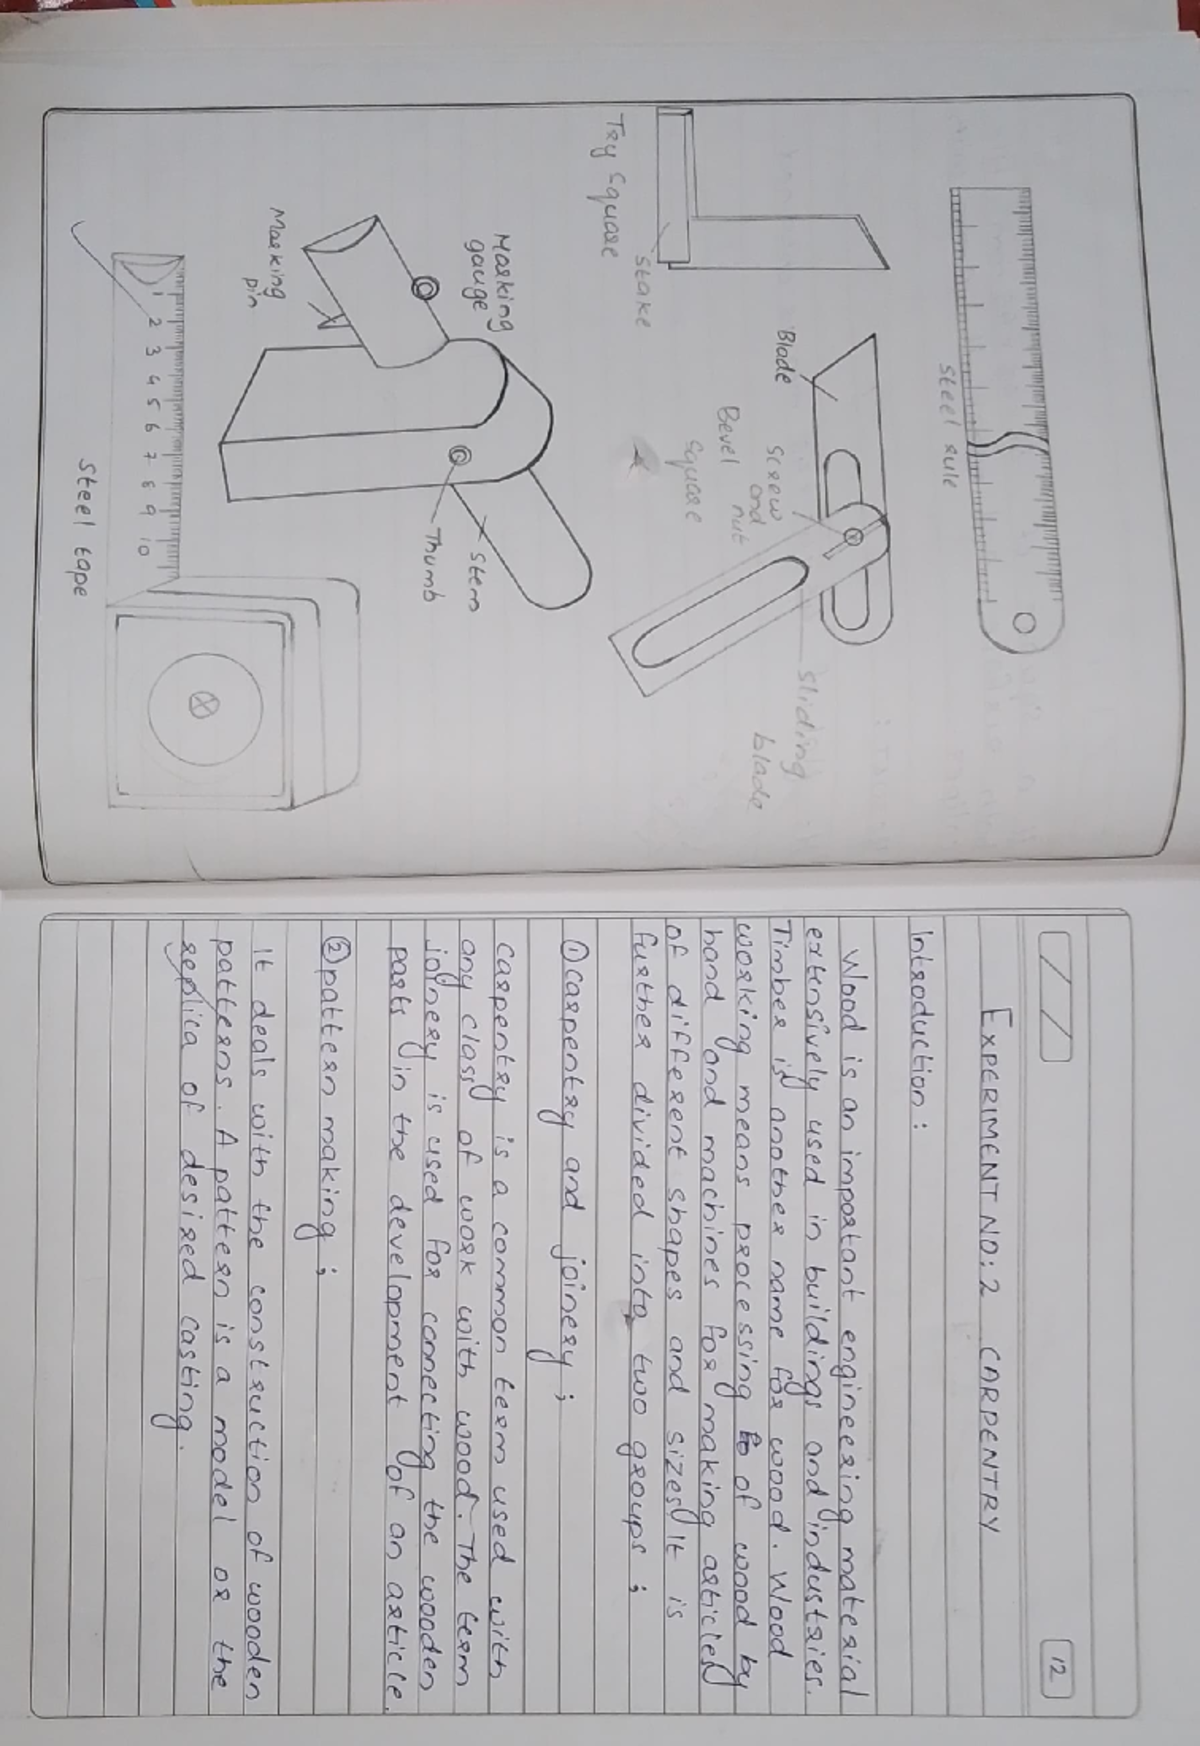 Steel rule
Try square
Stake
Blade
Screw
and
nut
Bevel
square
Sliding
blade
Marking
gauge
Marking
pin
Stem
Thumb
1 2 3 4 5 6 7 8 9 10
Steel tape
12
EXPERIMENT NO: 2 CARPENTRY
Introduction :
Wood is an important engineering material
extensively used in buildings and industries.
Timber is another name for wood. Wood
working means processing of wood by
hand and machines for making articles
of different shapes and sizes It is
further divided into two groups ;
① carpentry and joinery ;
carpentry is a common term used with
any class of work with wood. The term
joinery is used for connecting the wooden
parts in the development of an article.
② pattern making ;
It deals with the construction of wooden
patterns. A pattern is a model or the
replica of desired casting.